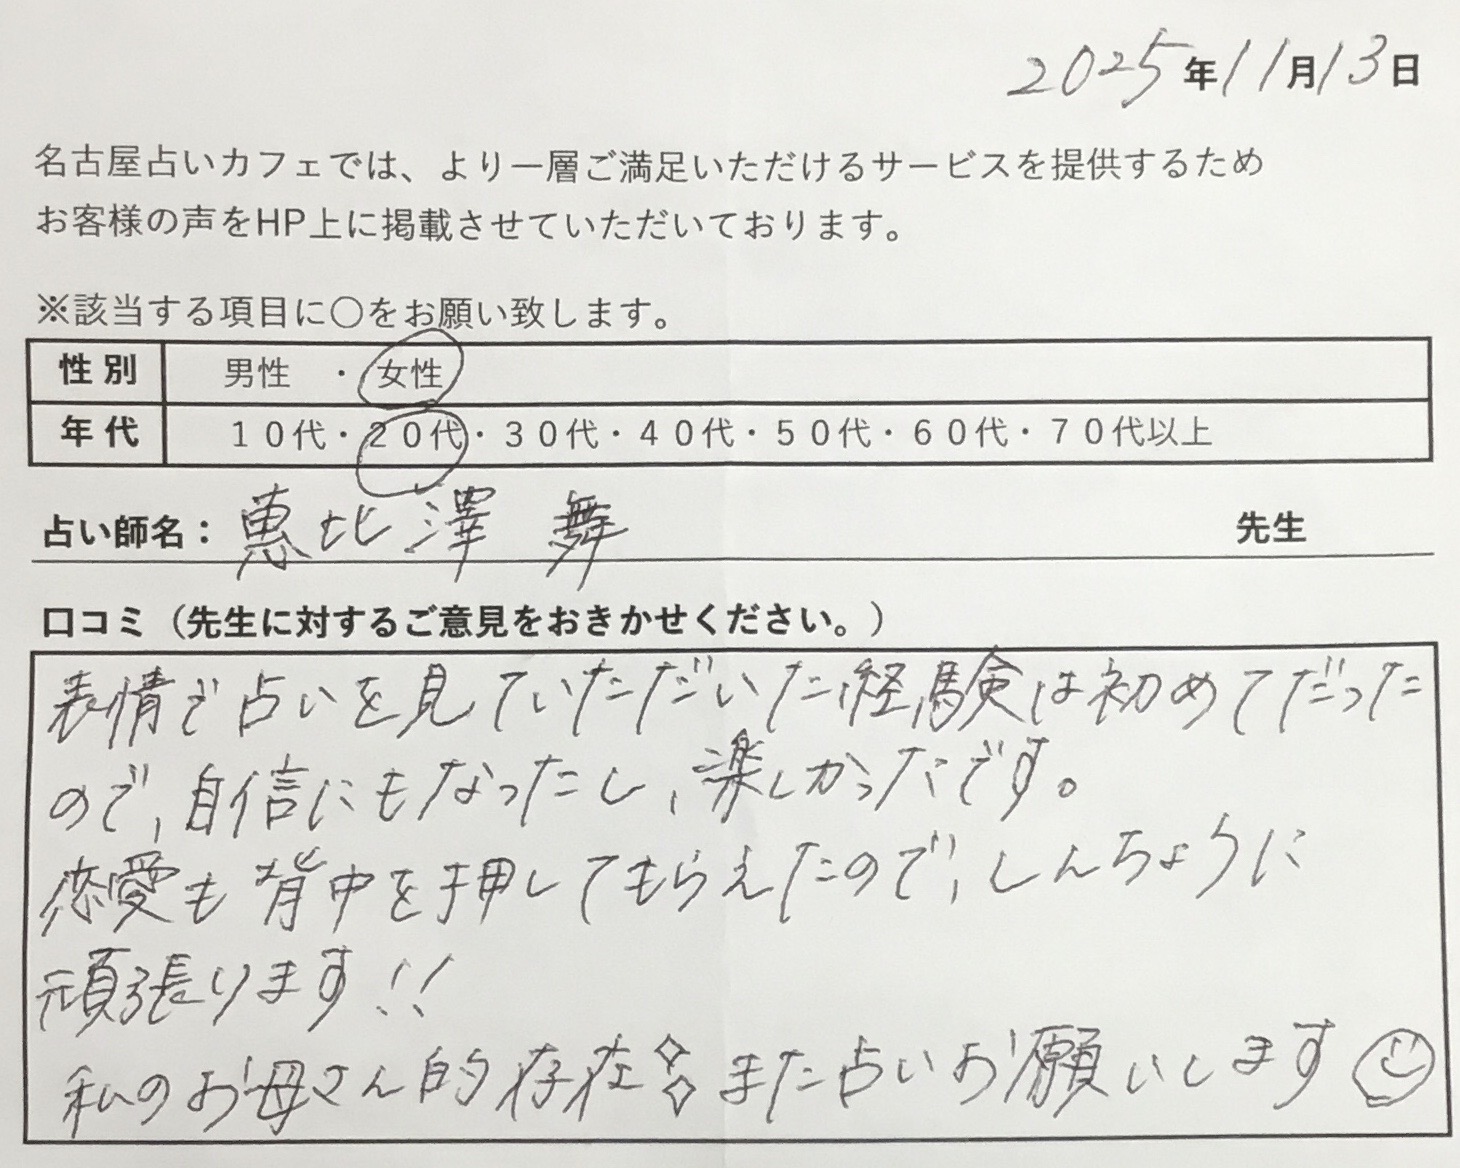 2025年11月13日
名古屋占いカフェでは、より一層ご満足いただけるサービスを提供するため
お客様の声をHP上に掲載させていただいております。
※該当する項目に〇をお願い致します。
性別 男性 ・ 女性
年代 10代・20代・30代・40代・50代・60代・70代以上
占い師名： 恵比澤 舞 先生
口コミ（先生に対するご意見をおきかせください。）
表情で占いを見ていただいた経験は初めてだった
ので、自信にもなったし、楽しかったです。
恋愛も背中を押してもらえたので、しんちょうに
頑張ります!!
私のお母さん的存在また占いお願いします